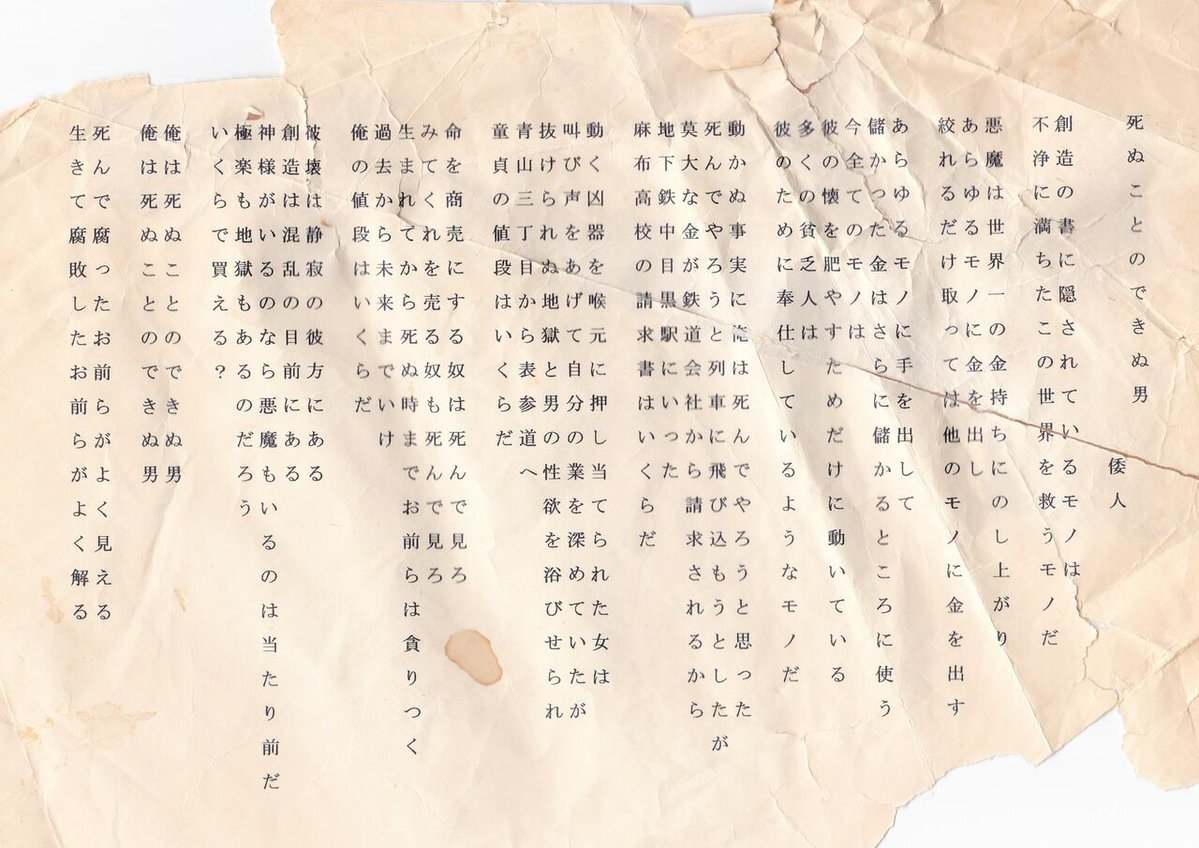 死ぬことのできぬ男
倭人
創造の書に隠されているモノは
不浄に満ちたこの世界を救うモノだ
悪魔は世界一の金持ちにのし上がり
あらゆるモノに金を出し
絞れるだけ取っては他のモノに金を出す
あらゆるモノに手を出して
儲かった金はさらに儲かるところに使う
今全てのモノは
彼の懐を肥やすためだけに動いている
多くの貧乏人は
彼のために奉仕しているようなモノだ
動かぬ事実に俺は死んでやろうと思った
死んでやろうと列車に飛び込もうとしたが
莫大な金が鉄道会社から請求されるから
地下鉄中目黒駅にいった
麻布高校の請求書はいくらだ
動く凶器を喉元に押し当てられた女は
叫び声をあげて自分の業を深めていたが
抜けられぬ地獄と男の性欲を浴びせられ
青山三丁目から表参道へ
童貞の値段はいくらだ
命を商売にする奴は死んで見ろ
みてくれを売る奴も死んで見ろ
生まれてから死ぬ時までお前らは貪りつく
過去から未来までいけ
俺の値段はいくらだ
彼壊は静寂の彼方にある
創造は混乱の目前にある
神様がいるのなら悪魔もいるのは当たり前だ
極楽も地獄もあるのだろう
いくらで買える？
俺は死ぬことのできぬ男
俺は死ぬことのできぬ男
死んで腐ったお前らがよく見える
生きて腐敗したお前らがよく解る